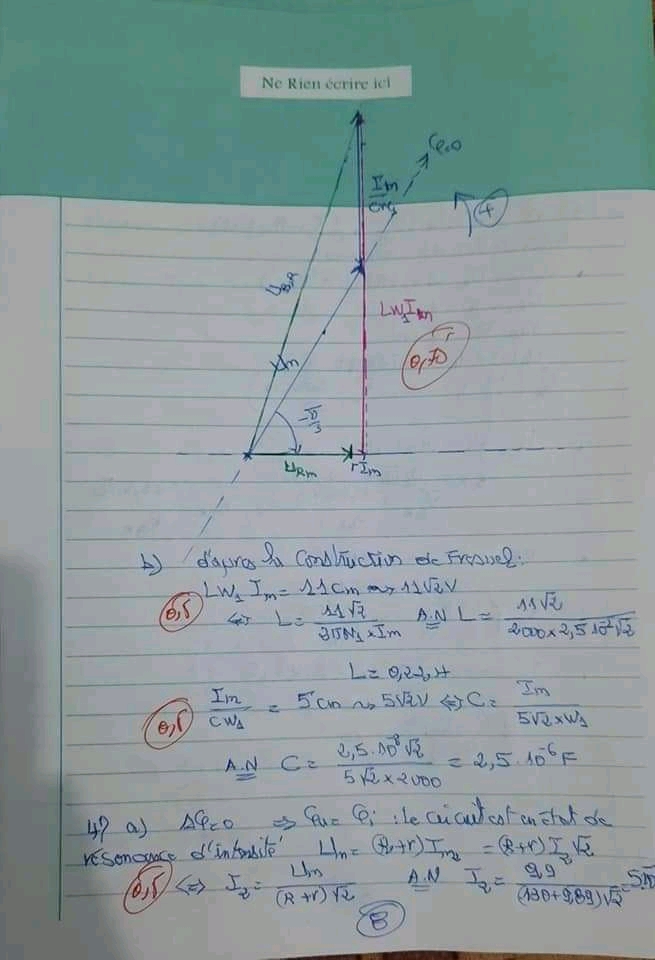 Ne Rien écrire ici
φ=0
Im
Cw₁
+
U_B,R
Lw₁Im
Um
0,75
-π/3
U_Rm
rIm
b) d'après la Construction de Fresnel:
Lw₁ Im = 11 Cm ⇝ 11√2 V
0,5
⇔ L = 11√2 / 2πN₁ × Im A.N L = 11√2 / 2000 × 2,5 10⁻² √2
L = 0,22 H
0,5
Im / Cw₁ = 5 Cm ⇝ 5√2 V ⇔ C = Im / 5√2 × w₁
A.N C = 2,5.10⁻²√2 / 5√2 × 2000 = 2,5.10⁻⁶ F
4°/ a) Δφ=0 ⇒ φu = φi : le circuit est en état de
résonance d'intensité Um = (R+r)Im₂ = (R+r) I₂√2
0,5
⇔ I₂ = Um / (R+r)√2 A.N I₂ =
8